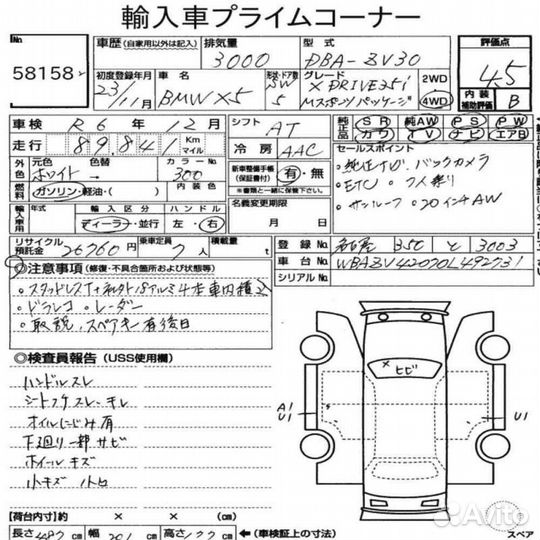 輸入車プライムコーナー
58158
車歴 (自家用以外は記入)
排気量
3000
型式
DBA-ZV30
評価点
4.5
初度登録年月
23/11月
車名
BMW X5
形状・ドア数
SW
5
グレード
X DRIVE35i
Mスポーツパッケージ
2WD
4WD
内装
補助評価
B
車検 R6年12月
シフト AT
純正品
SR 純AW PS PW
カワ TV ナビ エアB
走行 89,841 Km
マイル
冷房 AAC
セールスポイント
・純正ナビ・バックカメラ
・ETC ・7人乗り
・サンルーフ・20インチAW
外色
元色
色替
カラーNo.
ホワイト→
300
新車整備手帳
(保証書付)
有・無
※書類と一緒に保管下さい。
燃料
ガソリン・軽油・( )
内装色
名義変更期限
月 日
輸入車用
年式
輸入区分
ハンドル
ディーラー・並行
左・右
リサイクル
預託金
26760円
乗車定員
7人
積載量
t
登録No. 350 と 3003
車台No. WBAZV42070L492731
シリアルNo.
◎注意事項(修復・不具合箇所および状態等)
・ドラレコ・レーダー
・取説、スペアキー有後日
◎検査員報告 (USS使用欄)
ハンドルスレ
シートフケスレ キレ
オイルにじみ有
下廻り一部サビ
ホイールキズ
小キズ
×ヒビ
A1
U1
U1
【荷台内寸】約 × × (cm)
長さ
幅
高さ
(cm)
←(車検証上の寸法)
スペア
Avito